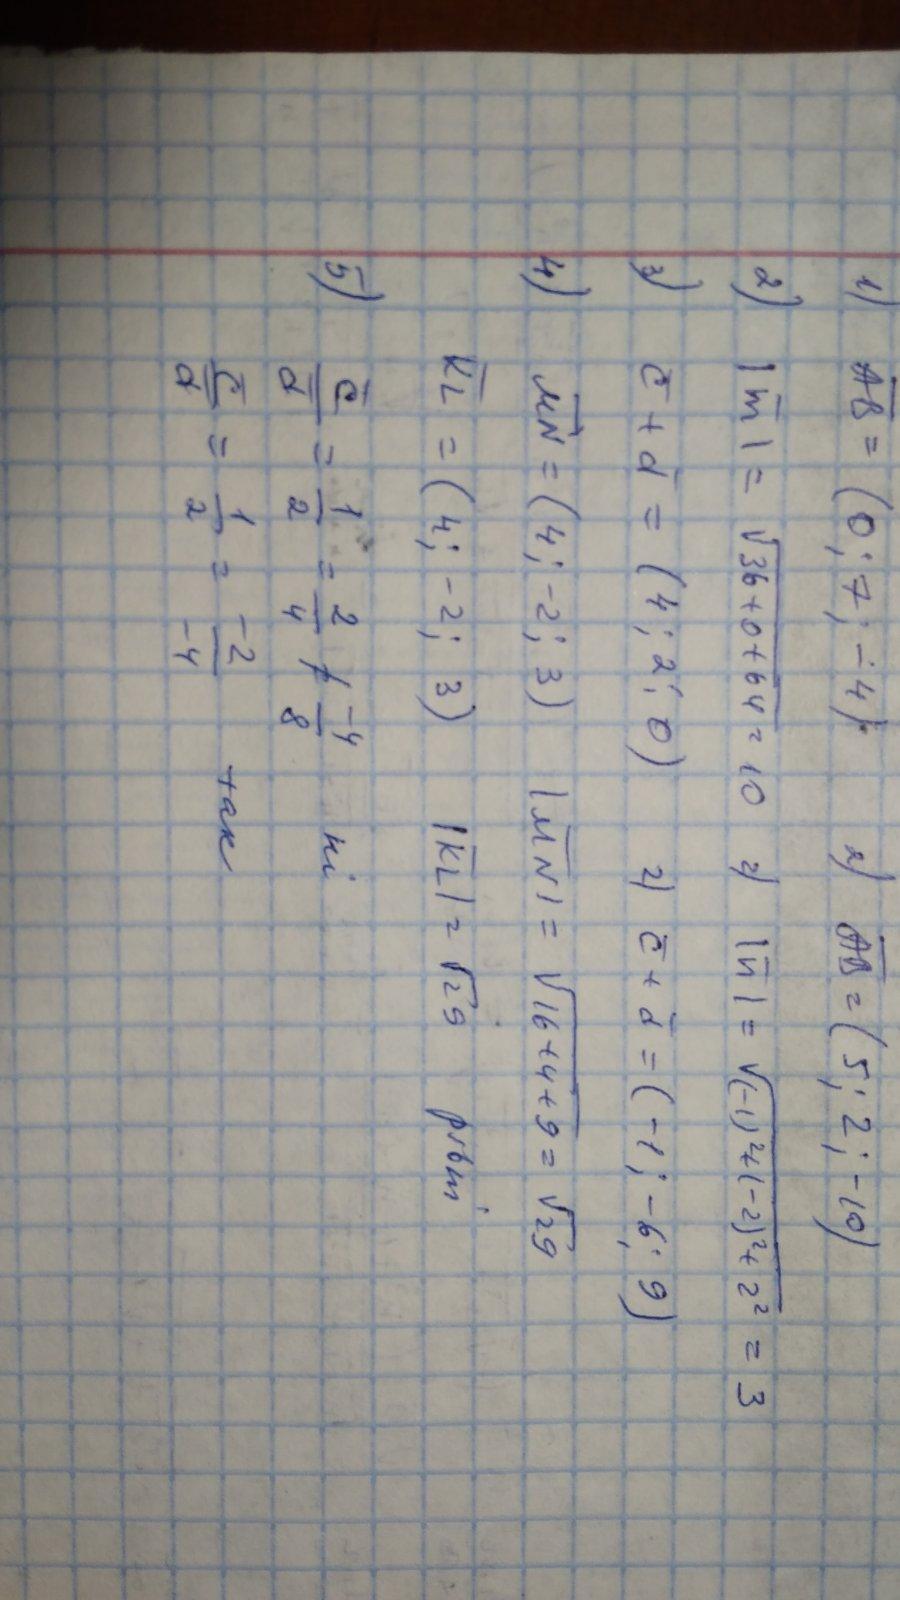 1) AB = (0; 7; -4) 2) AB = (5; 2; -10)
2) |m̅| = √36+0+64 = 10 2) |n̅| = √(-1)²+(-2)²+2² = 3
3) c̅ + d̅ = (4; 2; 0) 2) c̅ + d̅ = (-1; -6; 9)
4) MN = (4; -2; 3) |MN| = √16+4+9 = √29
KL = (4; -2; 3) |KL| = √29 рівні
5) c̅/d̅ = 1/2 = 2/4 ≠ -4/8 ні
c̅/d̅ = 1/2 = -2/-4 так